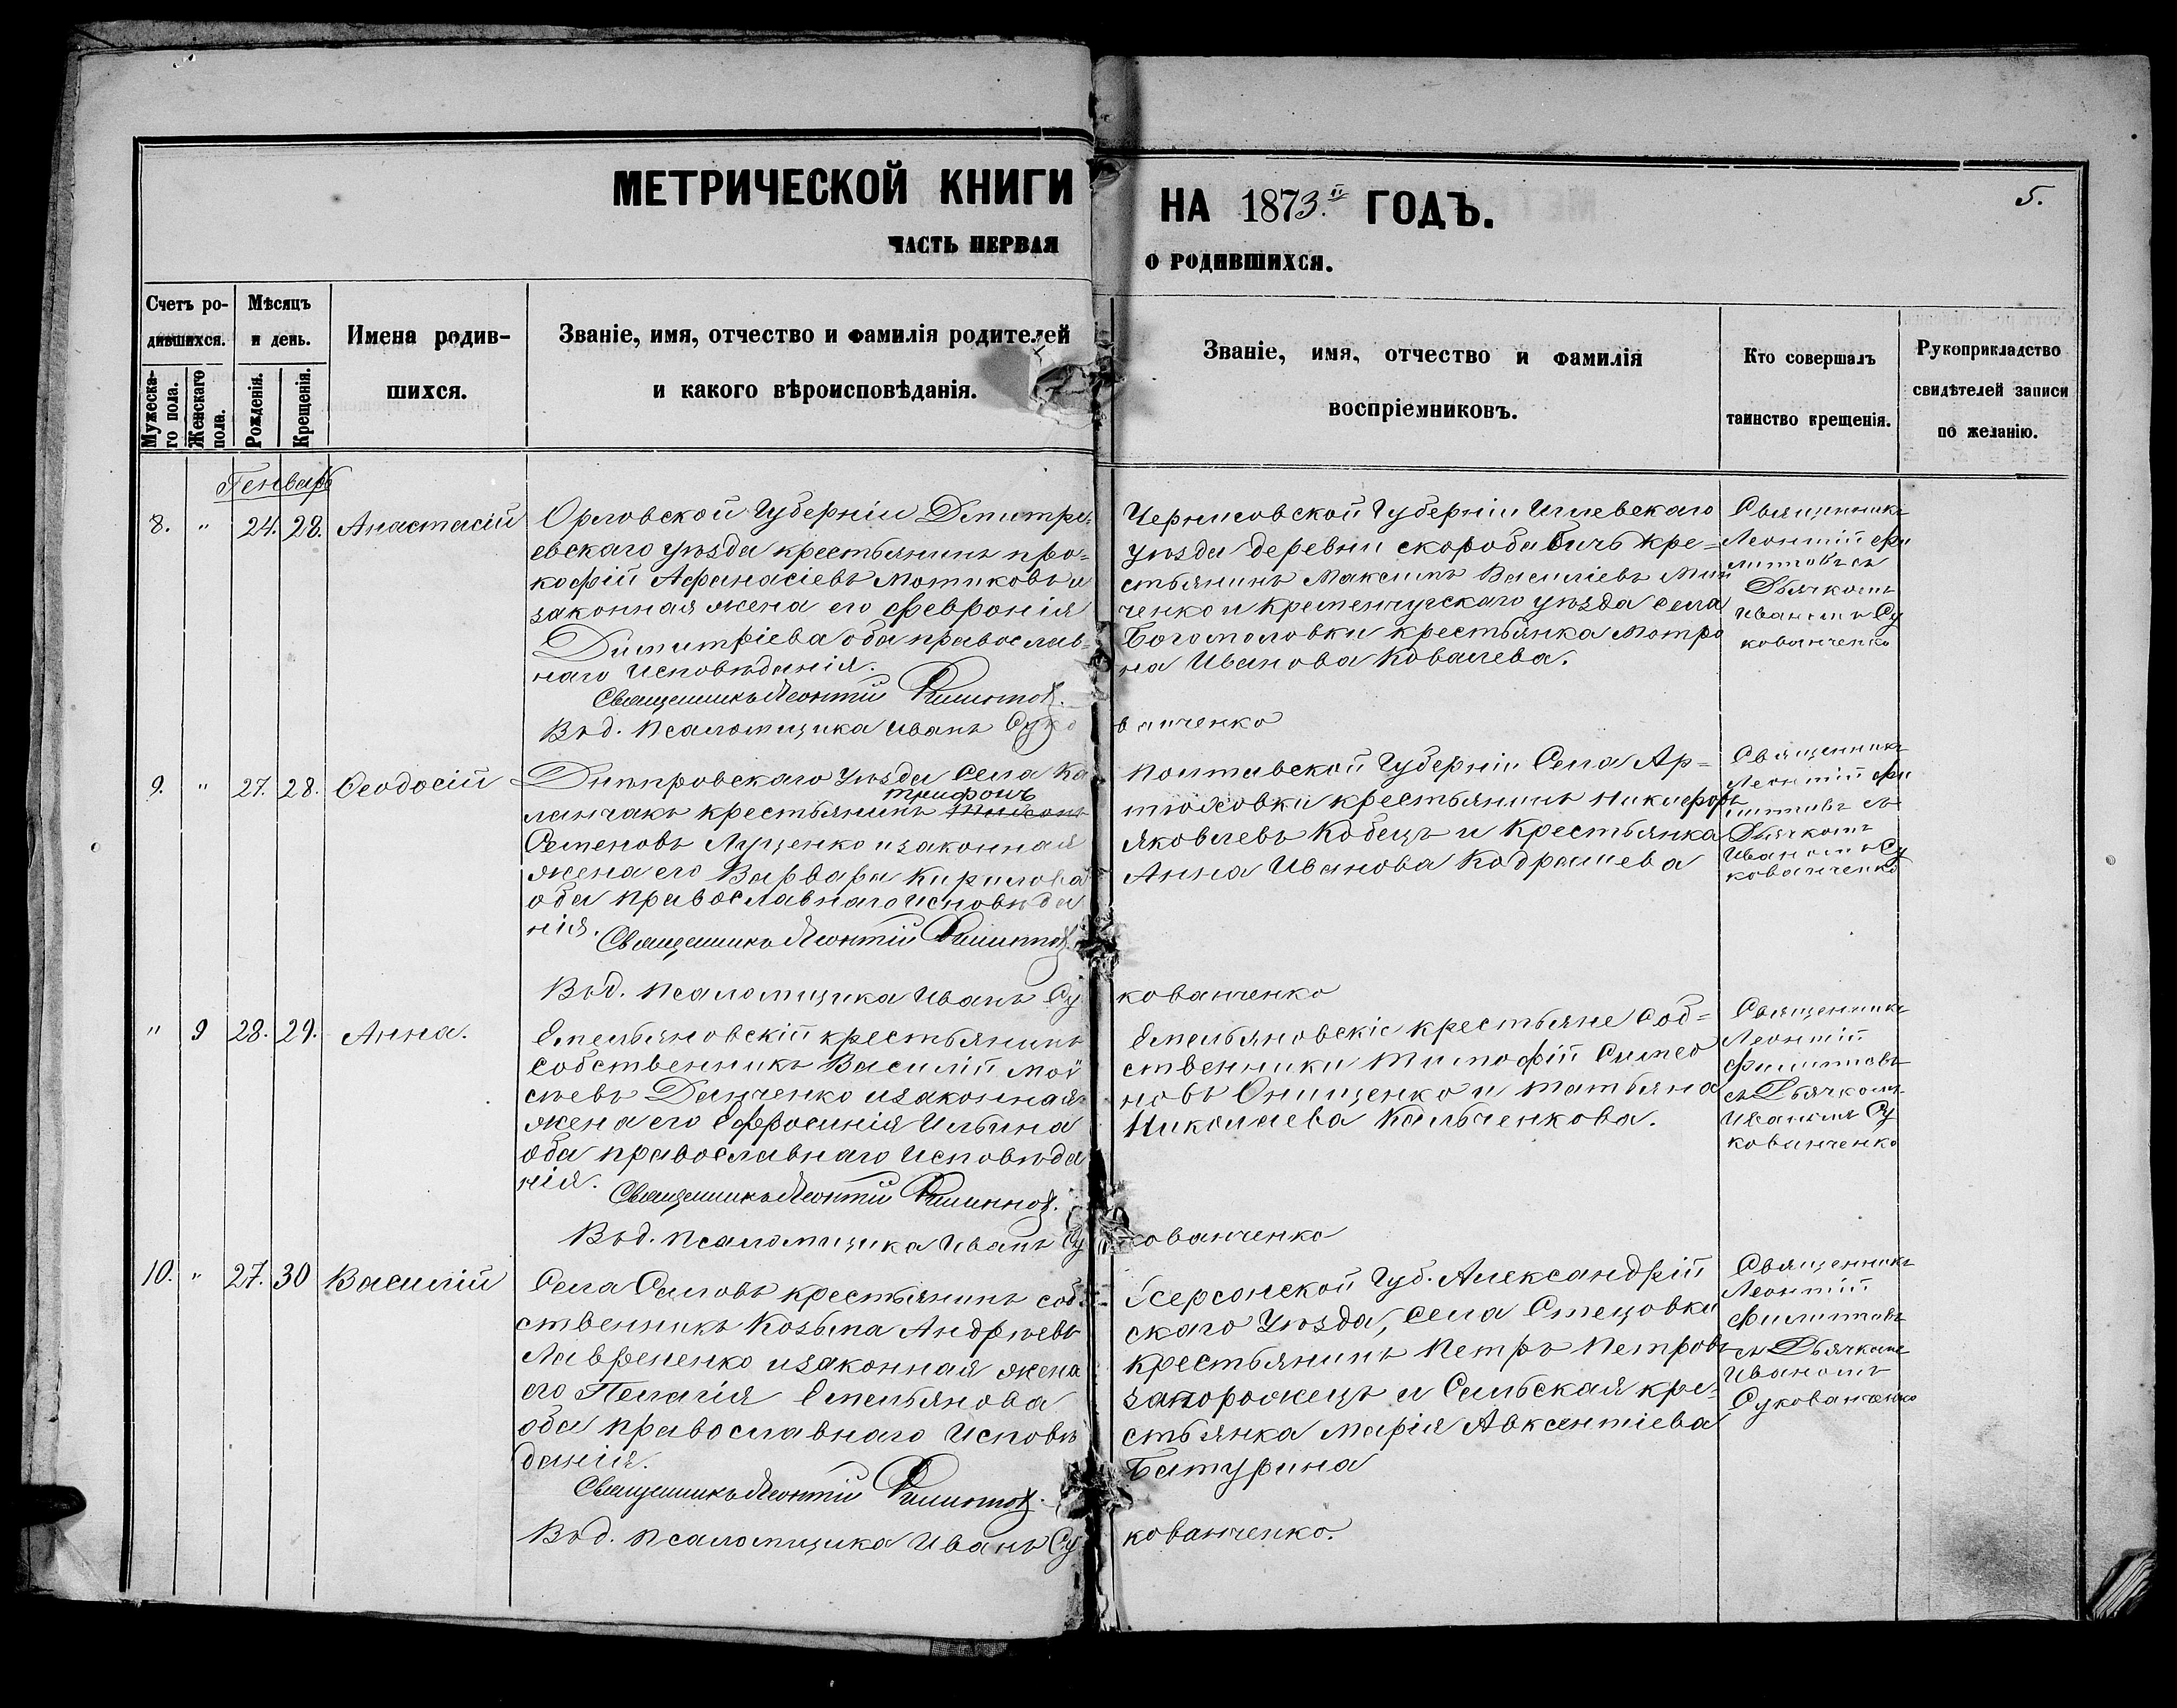 МЕТРИЧЕСКОЙ КНИГИ НА 1873.й ГОДЪ.
5.
ЧАСТЬ ПЕРВАЯ О РОДИВШИХСЯ.
Счетъ ро-
дившихся.
Мужеска-
го пола.
Женскаго
пола.
Мѣсяцъ
и день.
Рожденія.
Крещенія.
Имена родив-
шихся.
Званіе, имя, отчество и фамилія родителей
и какого вѣроисповѣданія.
Званіе, имя, отчество и фамилія
воспріемниковъ.
Кто совершалъ
таинство крещенія.
Рукоприкладство
свидѣтелей записи
по желанію.
Генварь
8. " 24. 28. Анастасій
Орловской Губерніи Дмитрі-
евскаго уѣзда крестьянинъ про-
кофій Афанасіевъ Мотиковъ и
законная жена его Февронія
Димитріева оба православ-
наго исповѣданія.
Священникъ Леонтій Филиппов.
Вод. псаломщика Иванъ Суко
Черниговской Губерніи
уѣзда деревни скоробабичь кре-
стьянинъ Максимъ Василіевъ Мин
ченко и Кременчугскаго уѣзда села
Богомоловки крестьянка Мотро
на Иванова Ковалева.
ванченко
Священникъ
Леонтій Фи
липповъ съ
Дьячкомъ
Иваномъ Су
кованченко
9. " 27. 28. Ѳеодосій
Днѣпровскаго уѣзда Села Ка
трифонъ
ланчакъ крестьянинъ
Семеновъ Луценко и законная
жена его Варвара Кирилова
оба православнаго исповѣда
нія. Священникъ Леонтій Филиппов.
Вод. псаломщика Иванъ Су
Полтавской Губерніи Села Ар-
тюховки крестьянинъ Никифоръ
Яковлевъ Кобецъ и Крестьянка
Анна Иванова Кодрашева
кованченко
Священникъ
Леонтій Фи
липповъ съ
Дьячкомъ
Иваномъ Су
кованченко
" 9 28. 29. Анна.
Емельяновскій крестьянинъ
собственникъ Василій Мои
сѣевъ Данченко и законная
жена его Ефросинія Ильина
оба православнаго исповѣда
нія. Священникъ Леонтій Филиппов.
Вод. псаломщика Иванъ Су
Емельяновскіе крестьяне соб-
ственники Тимофій Симео
новъ Онищенко и Татьяна
Николаева Кальченкова.
кованченко
Священникъ
Леонтій
Филипповъ
съ Дьячкомъ
Иваномъ Су
кованченко
10. " 27. 30 Василій
Села крестьянинъ соб-
ственникъ Козьма Андрѣевъ
Лаврененко и законная жена
его Пелагія Емельянова
оба православнаго исповѣ
данія.
Священникъ Леонтій Филиппов.
Вод. псаломщика Иванъ Су
Херсонской Губ. Александрій
скаго Уѣзда, села Стецовки
крестьянинъ Петръ Петровъ
запорожецъ и Сельская кре-
стьянка Марія Авксентіева
Батурина
кованченко.
Священникъ
Леонтій
Филипповъ
съ Дьячкомъ
Иваномъ
Сукованченко